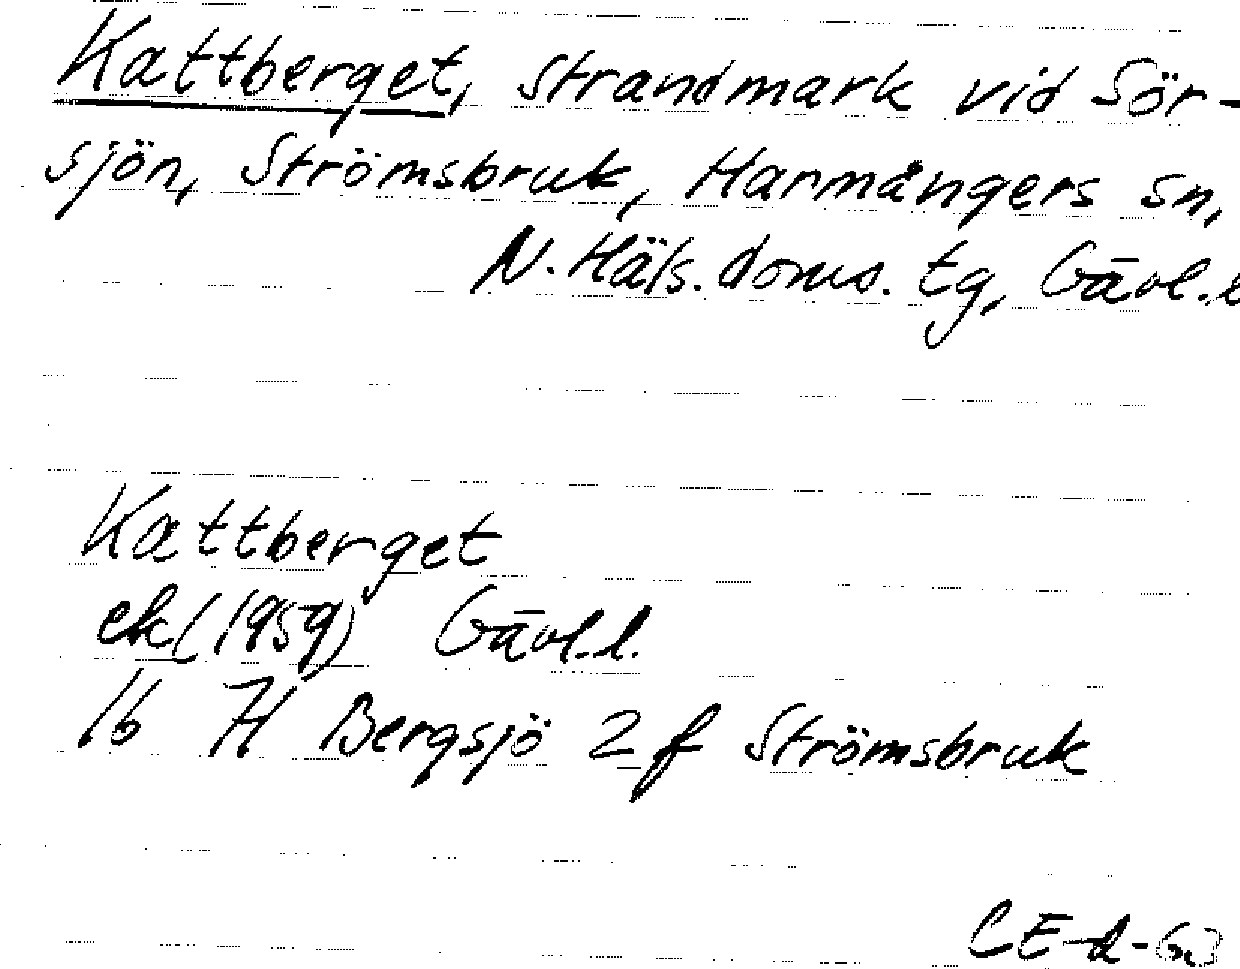 Kattberget, Strandmark vid Sör-
sjön, Strömsbruk, Harmångers sn,
N. Häls. doms. tg, Gävl.l
Kattberget
ek (1959) Gävl.l.
16 H Bergsjö 2 f Strömsbruk